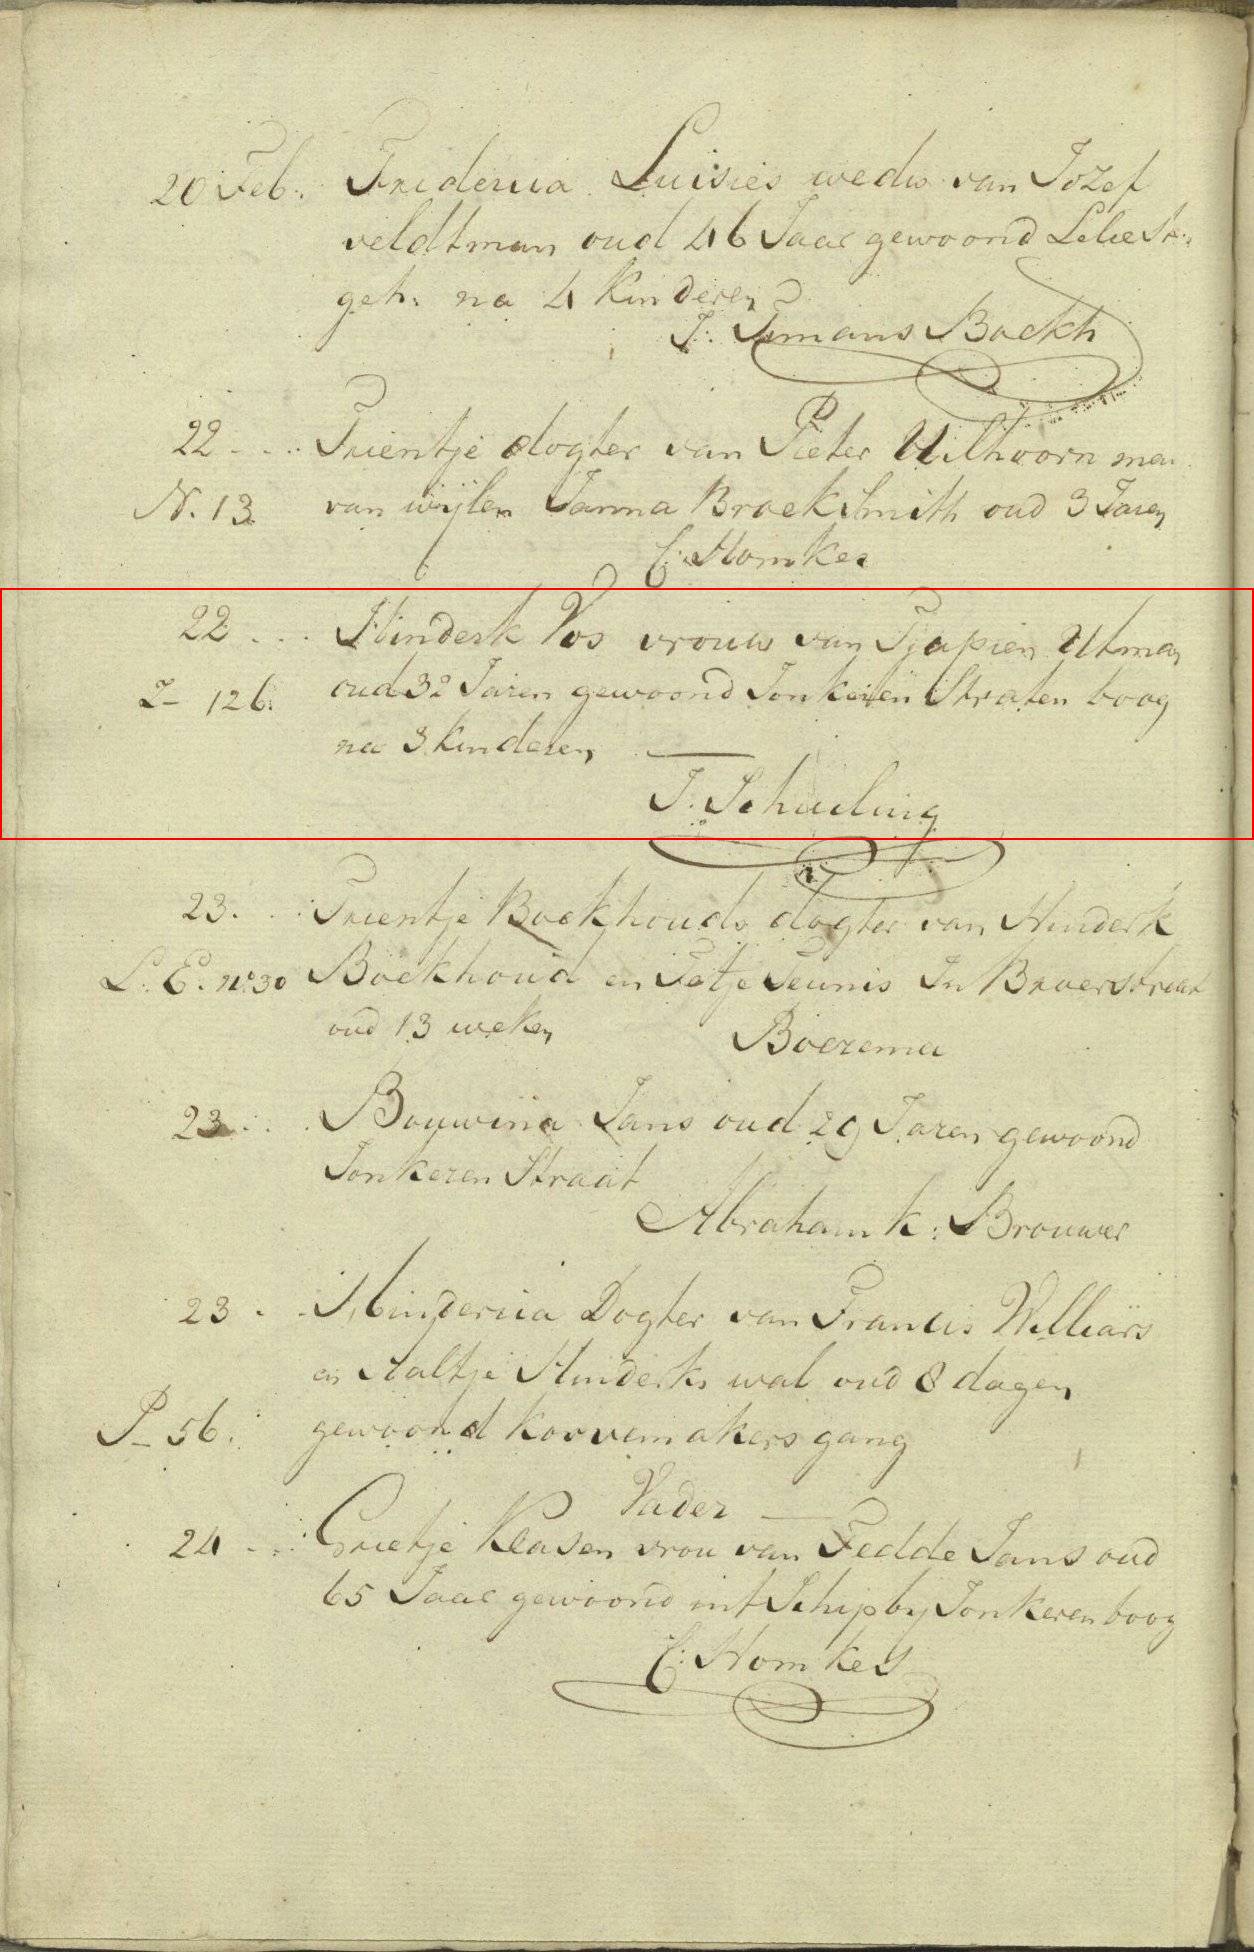 20 Feb: Fridericia Luisies wedw van Jozef
veldtman oud 46 Jaar gewoond Lelie Str:
geh: na 4 Kinderen
J: Timans Boekh
22 - . . : Trientje dogter van Pieter Uilhoorn men
N. 13. van wijlen Janna Broek Smith oud 3 Jaren
C: Homkes
22 . . . Hinderk Vos vrouw van Tjapien Utman
Z - 126: oud 32 Jaren gewoond Jonkeren Straten boog
na 3 kinderen
J. Schuiling
23. . . : Trientje Boekhouds dogter van Hinderk
L: E: no: 30 Boekhoud en Tetje Teunis In Bruerstraat
oud 13 weken
Boerema
23 . . . Bouwina Jans oud 29 Jaren gewoond
Jonkeren Straat
Abraham k: Brouwer
23 - . Hindericia Dogter van Francis Williärs
en Aaltje Hinderks wal oud 8 dagen
P - 56: gewoond korvemakers gang
Vader —
24 - . : Grietje Klasen vrou van Fedde Jans oud
65 Jaar gewoond int Schip by Jonkeren boog
C: Homkes